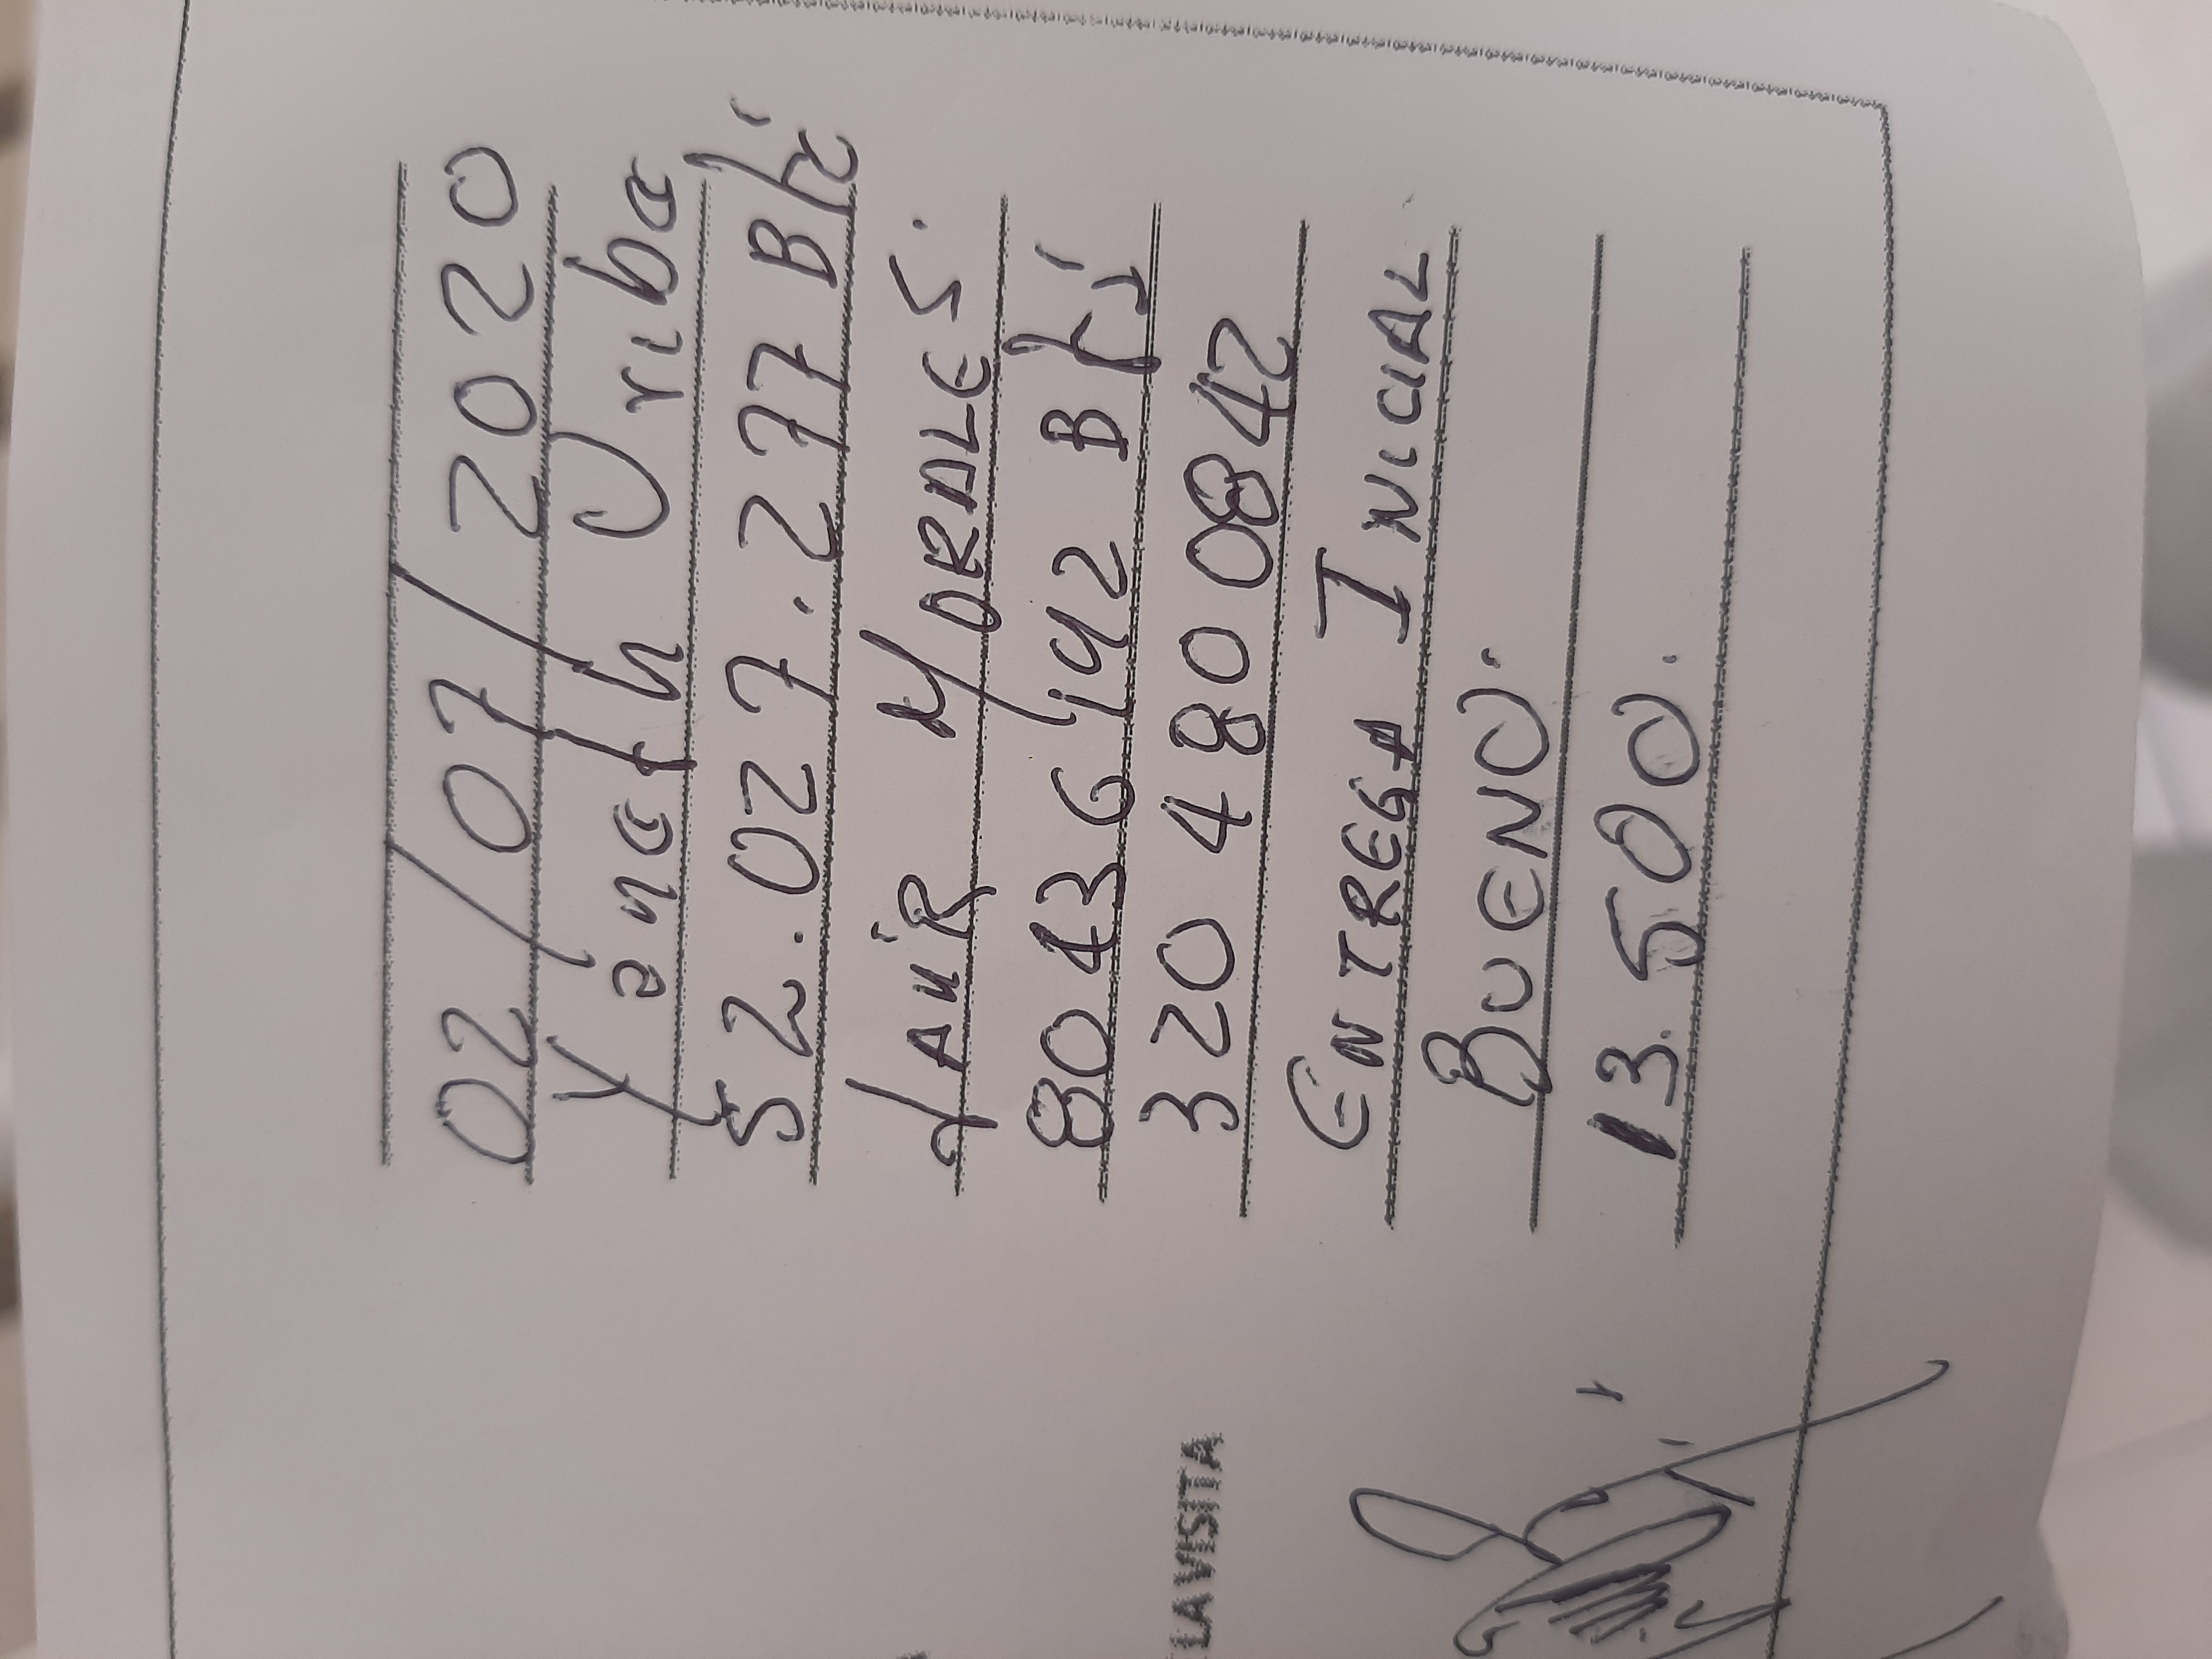 02/07/2020
Yaneth Oriba
52.027.277 B/
JAVIR MORALES.
80436192 B
320 480 0842
ENTREGA INICIAL
BUENO.
13.500.
LA VISITA